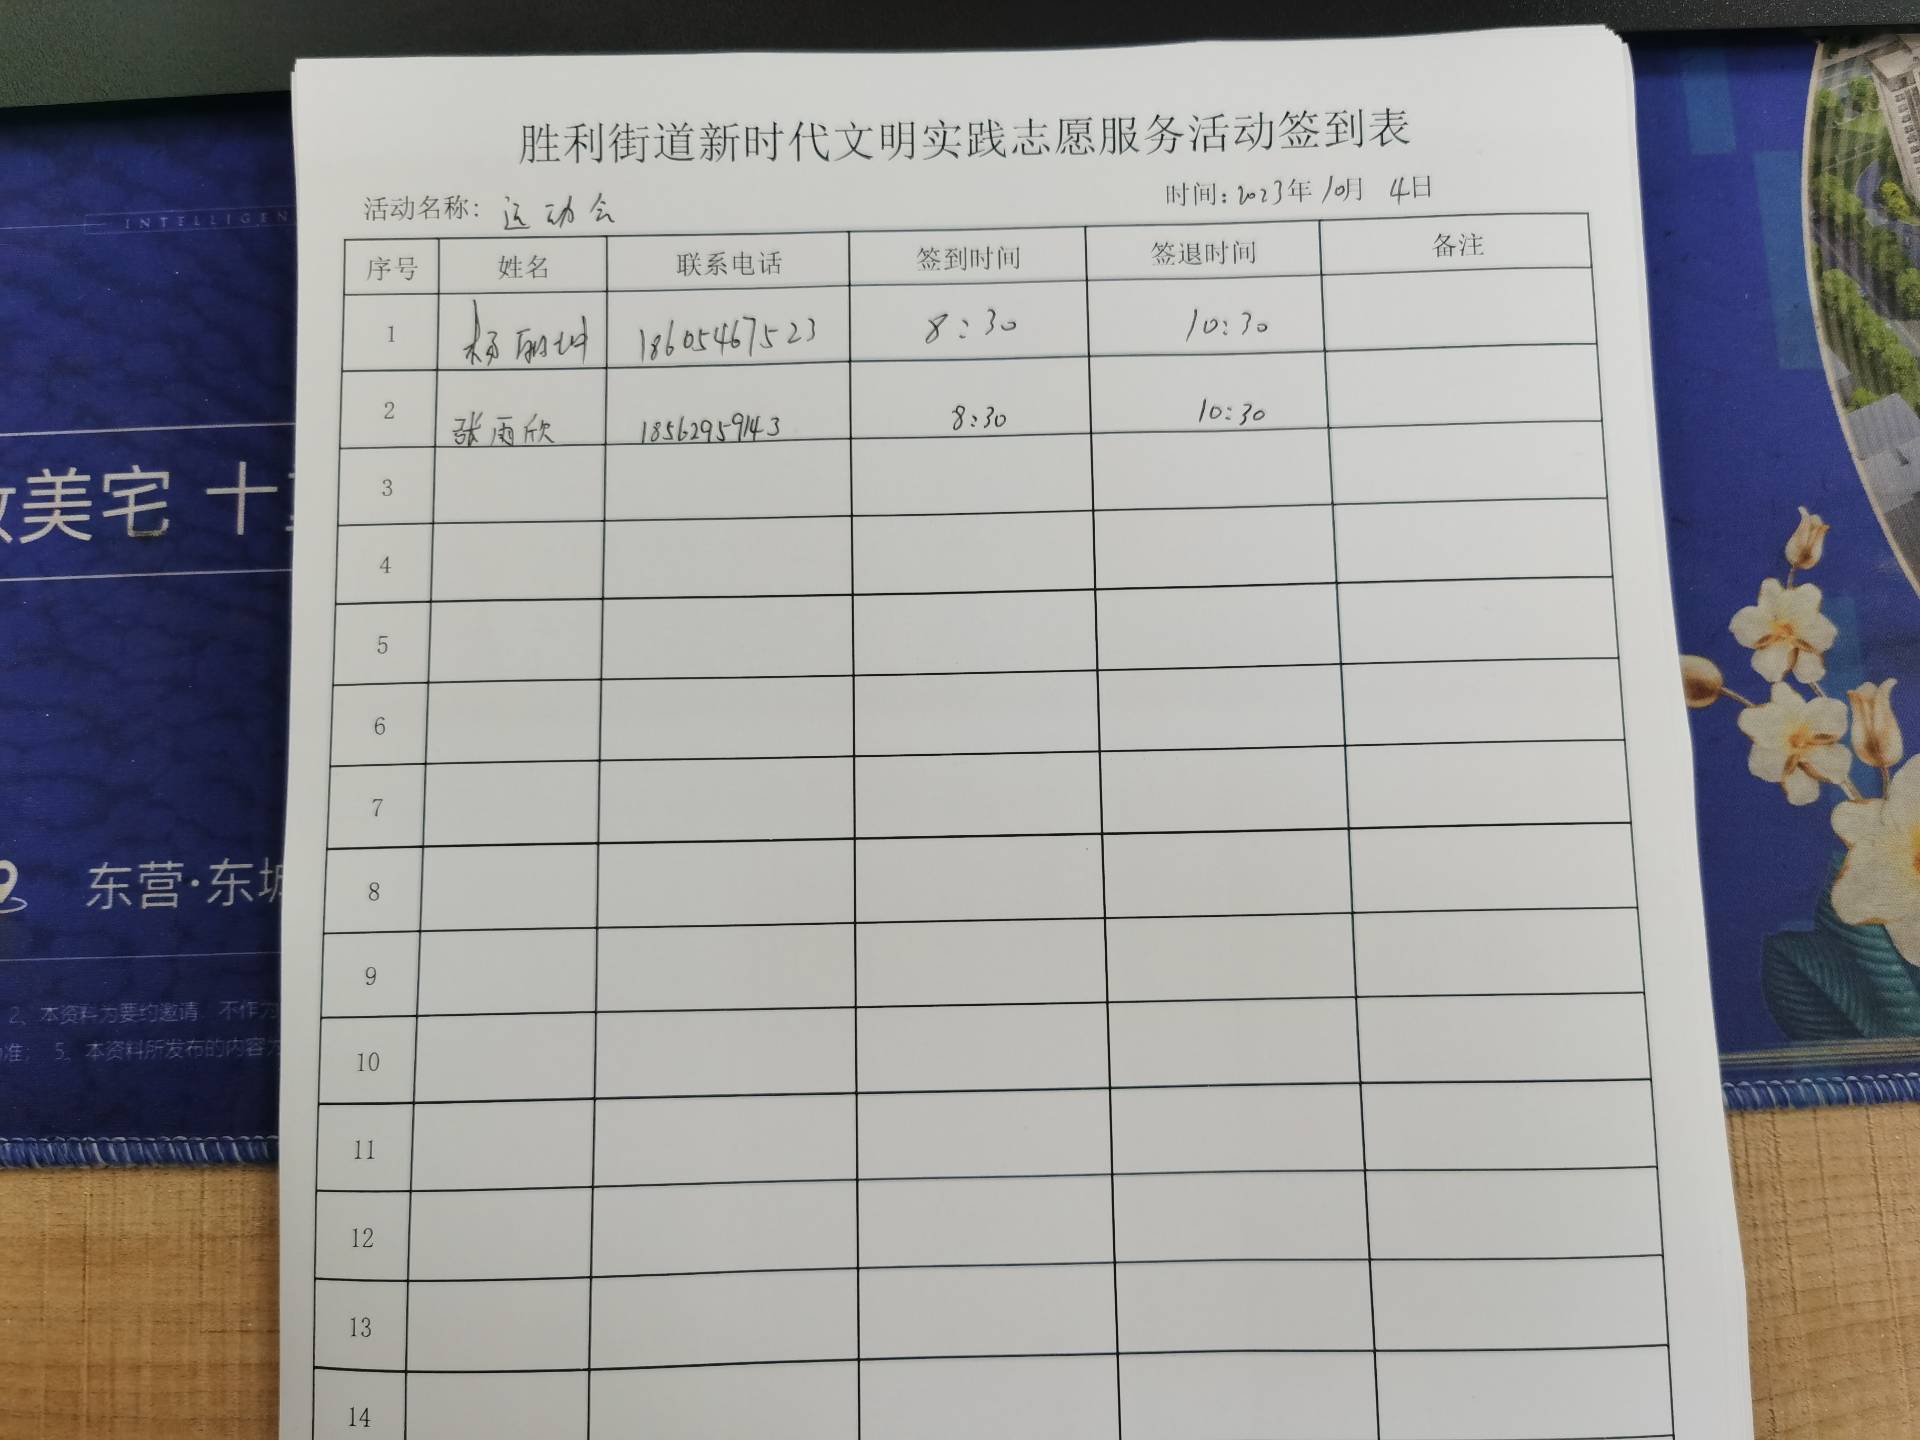 胜利街道新时代文明实践志愿服务活动签到表
活动名称：运动会 时间：2023年10月4日
序号 姓名 联系电话 签到时间 签退时间 备注
1 杨丽坤 18605467523 8:30 10:30
2 张雨欣 18562959143 8:30 10:30
3
4
5
6
7
8
9
10
11
12
13
14
INTELLIGEN
美宅 十
东营·东城
2、本资料为要约邀请 不作为
准； 5、本资料所发布的内容为